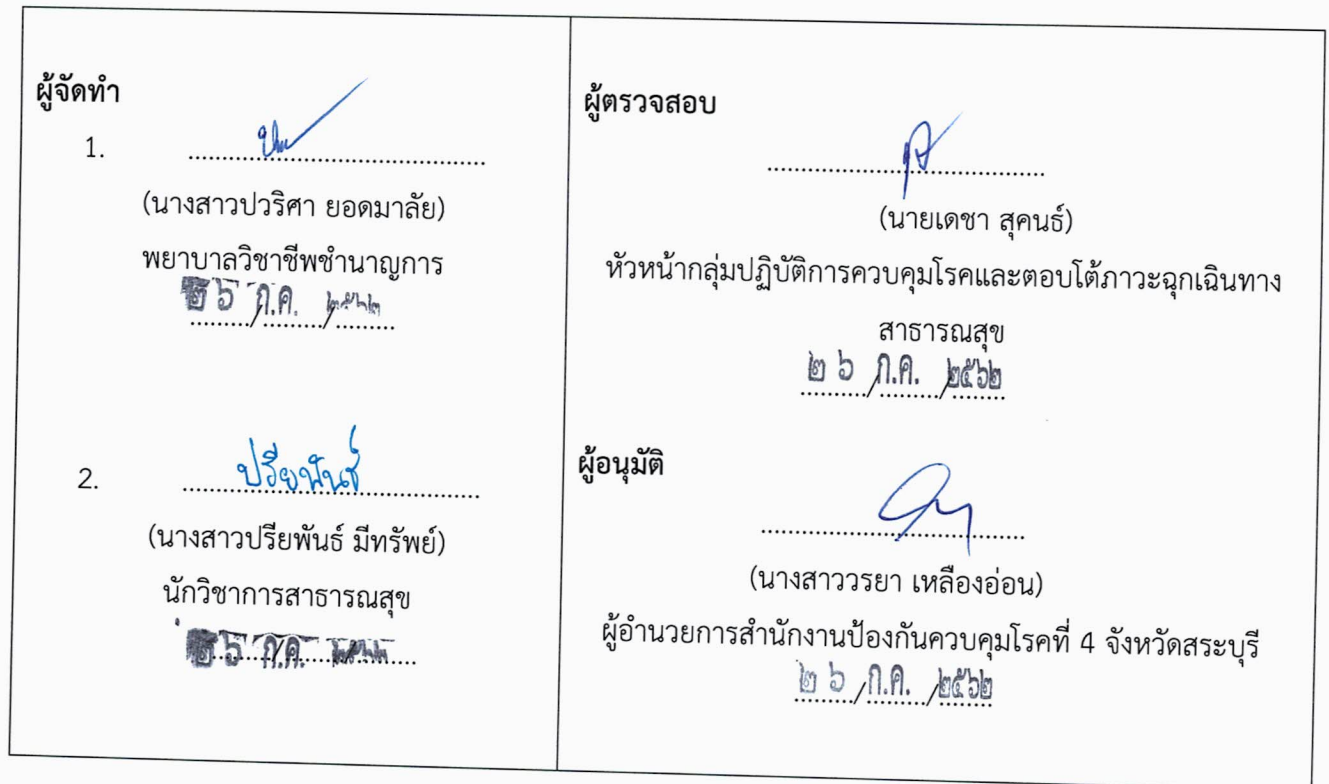 ผู้จัดทำ
1. ........................................
(นางสาวปวริศา ยอดมาลัย)
พยาบาลวิชาชีพชำนาญการ
๒๖ ก.ค. ๒๕๖๒
2. ปรียพันธ์
(นางสาวปรียพันธ์ มีทรัพย์)
นักวิชาการสาธารณสุข
๒๖ ก.ค.
ผู้ตรวจสอบ
(นายเดชา สุคนธ์)
หัวหน้ากลุ่มปฏิบัติการควบคุมโรคและตอบโต้ภาวะฉุกเฉินทาง
สาธารณสุข
๒๖ /ก.ค. /๒๕๖๒
ผู้อนุมัติ
(นางสาววรยา เหลืองอ่อน)
ผู้อำนวยการสำนักงานป้องกันควบคุมโรคที่ 4 จังหวัดสระบุรี
๒๖ /ก.ค. /๒๕๖๒